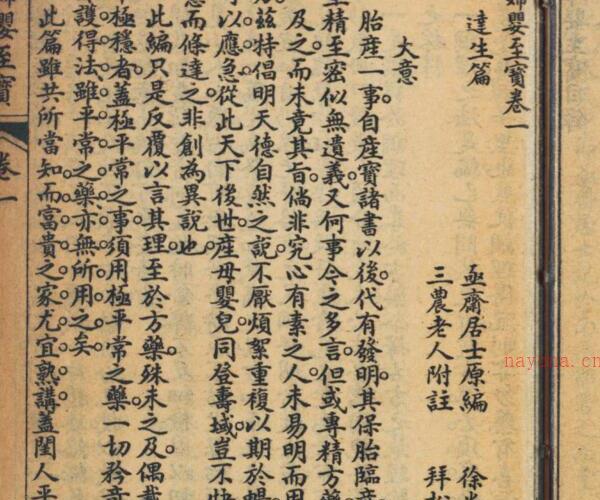 婦嬰至寶卷一
達生篇
亟齋居士原編 徐
三農老人附註 拜
大意
胎產一事。自產寶諸書以後。代有發明。其保胎臨產
至精至密。似無遺義。又何事今之多言。但或專精方藥
及之而未竟其旨。倘非究心有素之人。未易明而用
茲特倡明天德自然之說。不厭煩絮重複。以期於暢
以應急。從此天下後世。產母嬰兒。同登壽域。豈不快
而條達之。非創為異說也。
此編只是反覆以言其理。至於方藥。殊未之及。偶載
極穩者。蓋極平常之事。須用極平常之藥。一切矜奇
護得法。雖平常之藥。亦無所用之矣。
此篇雖共所當知。而富貴之家。尤宜熟講。蓋閨人平
婦嬰至寶 卷一
nayona.cn